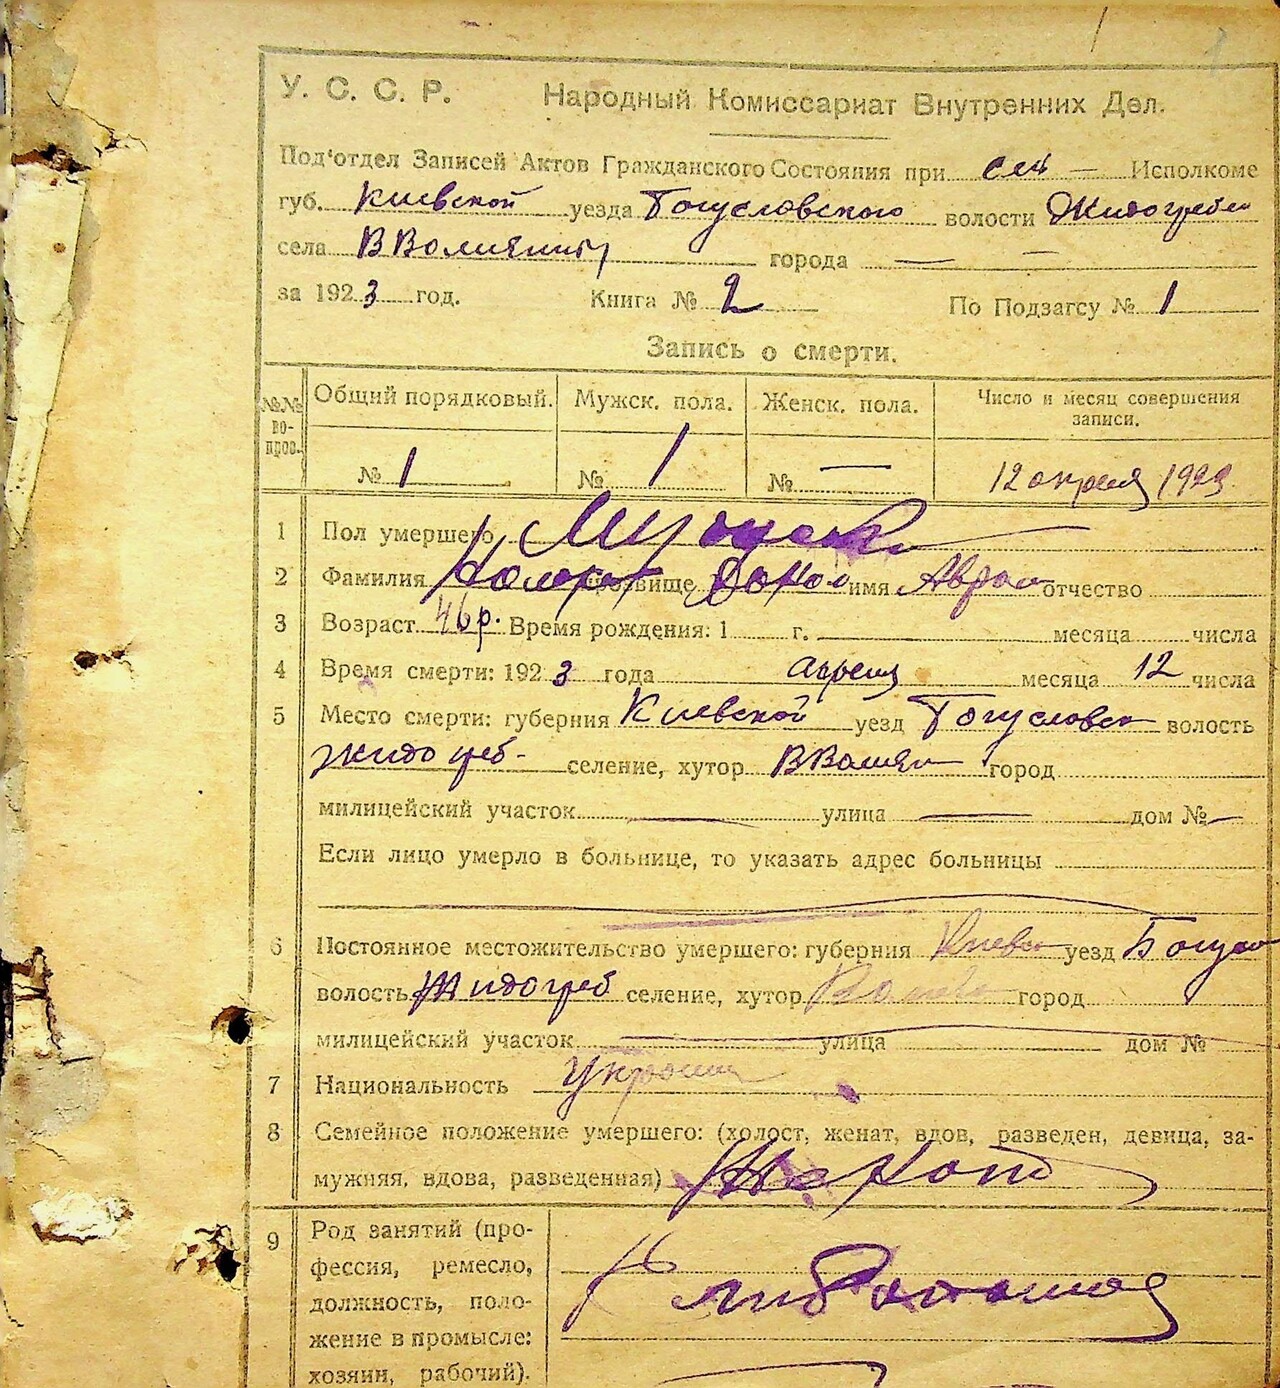 У. С. С. Р. Народный Комиссариат Внутренних Дел.
Под'отдел Записей Актов Гражданского Состояния при сел — Исполкоме
губ. Киевской уезда Богуславского волости
села города —
за 1923 год. Книга № 2 По Подзагсу № 1
Запись о смерти.
№№ вопров. Общий порядковый. Мужск. пола. Женск. пола. Число и месяц совершения записи.
№ 1 № 1 № — 12 апреля 1923
1 Пол умершего Мужск
2 Фамилия прозвище имя Аврам отчество
3 Возраст 46 р. Время рождения: 1 г. месяца числа
4 Время смерти: 1923 года апреля месяца 12 числа
5 Место смерти: губерния Киевской уезд Богуславск волость
Жидогреб- селение, хутор город
милицейский участок — улица — дом № —
Если лицо умерло в больнице, то указать адрес больницы
6 Постоянное местожительство умершего: губерния Киевск уезд Богусл
волость Жидогреб селение, хутор город
милицейский участок улица дом №
7 Национальность
8 Семейное положение умершего: (холост, женат, вдов, разведен, девица, за-
мужняя, вдова, разведенная) Женат
9 Род занятий (про-
фессия, ремесло,
должность, поло-
жение в промысле:
хозяин, рабочий).